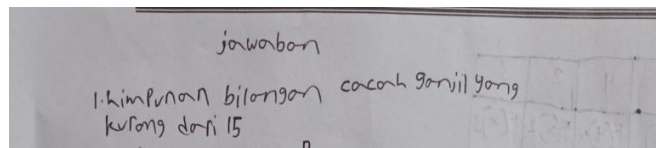 jawaban
1. himpunan bilangan cacah ganjil yang
kurang dari 15